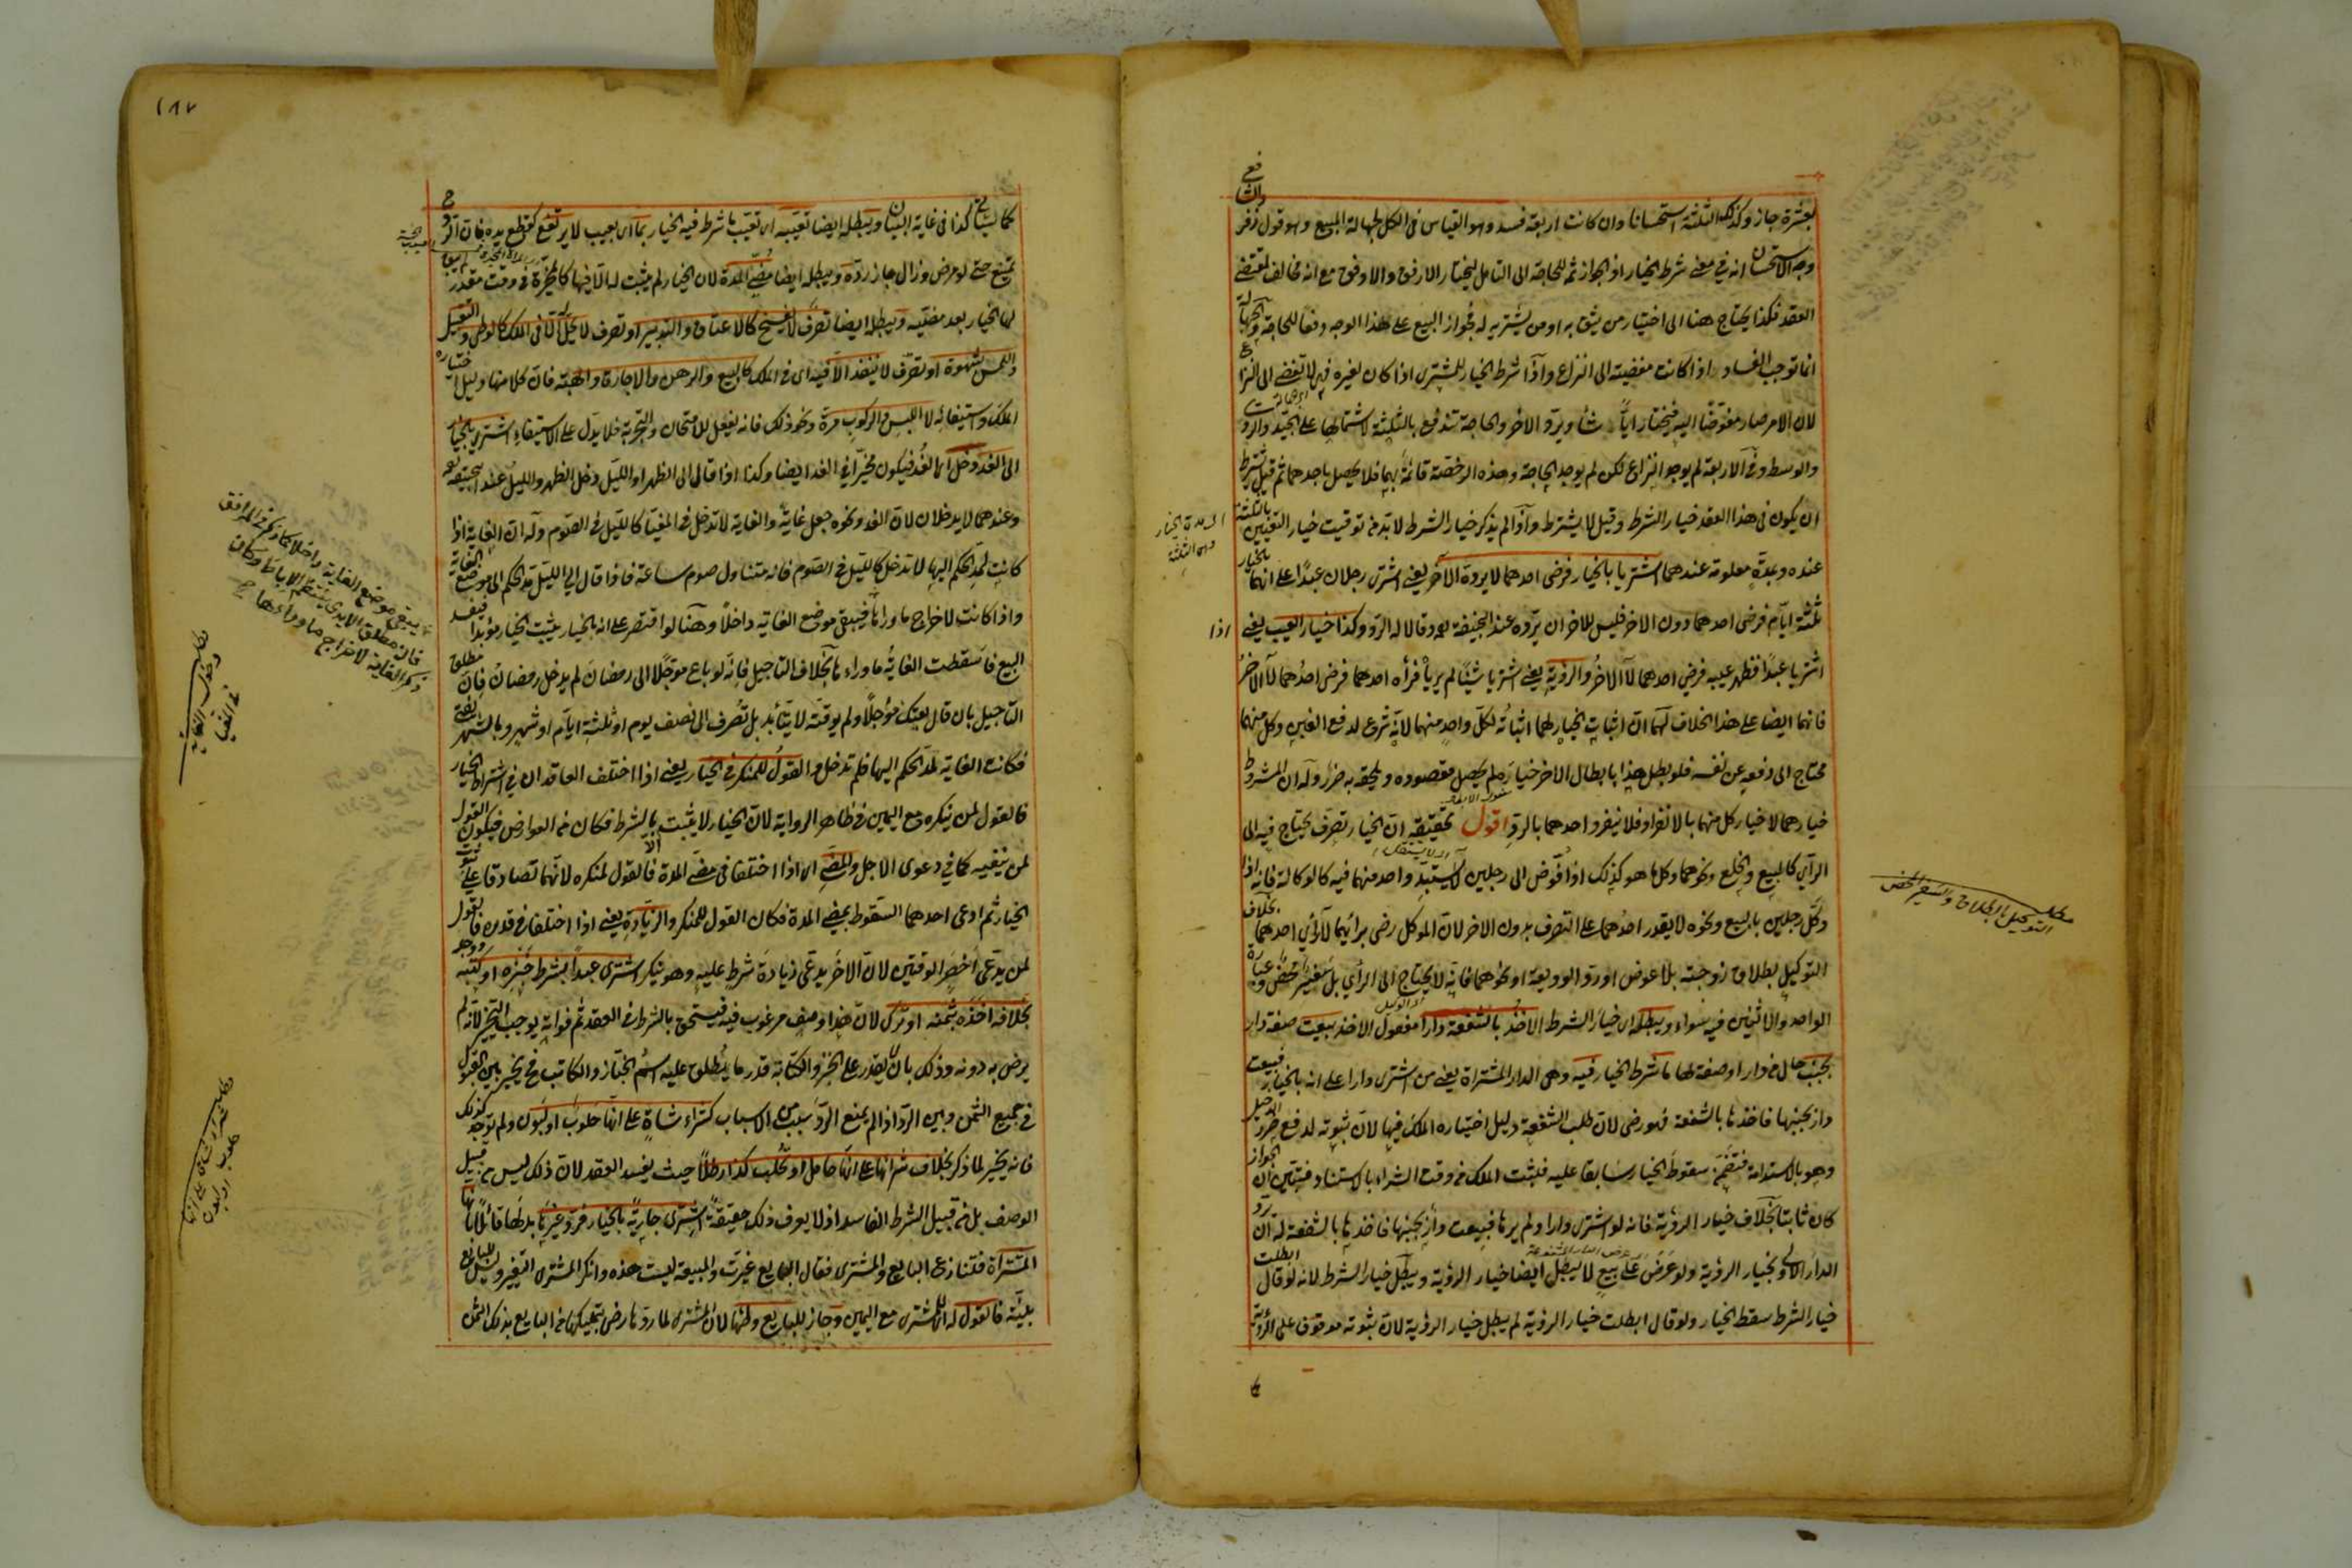 بعشرة جاز وكذلك الثلثة استحسانا وان كانت اربعة فسد وهو القياس فى الكل لجهالة المبيع وهو قول زفر والشافعى
وجه الاستحسان انه فى معنى شرط الخيار اذ الجواز ثمه للحاجة الى التامل ليختار الارفق والاوفق مع انه مخالف لمقتضى
العقد فكذا يحتاج هنا الى اختيار من يثق به او من يشتريه له فجواز البيع على هذا الوجه دفعا للحاجة والجهالة
انما توجب الفساد اذا كانت مفضية الى النزاع واذا شرط الخيار للمشترى اذا كان لغيره فهى لا تفضى الى النزاع
لان الامر صار مفوّضا اليه فيختار ايا شاء ويردّ الاخر والحاجة تندفع بالثلثة لاشتمالها على الجيّد والردى
والوسط وفى الاربعة لم يوجد النزاع لكن لم يوجد الحاجة وهذه الرخصة قائمة بهما فلا يحصل باحدهما ثم قيل يشترط
ان يكون فى هذا العقد خيار الشرط وقيل لا يشترط واذا لم يذكر خيار الشرط لا بد من توقيت خيار التعيين بالثلثة
عنده وبمدة معلومة عندهما اشتريا بالخيار فرضى احدهما لا يرده الآخر يعنى اشترى رجلان عبدًا على انهما بالخيار
ثلثة ايّام فرضى احدهما دون الاخر فليس للاخر ان يرده عند ابى حنيفة وقالا له الردّ وكذا خيار العيب يعنى اذا
اشتريا عبدًا فظهر عيبه فرضى احدهما لا الاخر والرؤية يعنى اشتريا شيئا لم يرياه فرأه احدهما فرضى احدهما لا الاخر
فانهما ايضا على هذا الخلاف لهما ان اثبات الخيار لهما اثباته لكلّ واحد منهما لانّه شرع لدفع الغبن وكل منهما
محتاج الى دفعه عن نفسه فلو بطل هذا بابطال الاخر خياره لم يحصل مقصوده ويلحقه به ضرر وله ان المشروط
خيارهما لا خيار كل منهما بالانفراد فلا ينفرد احدهما بالردّ اقول تحقيقه ان الخيار تصرف يحتاج فيه الى
الرأى كالبيع والخلع ونحوهما وكل ما هو كذلك اذا فوّض الى رجلين لا يستبد واحد منهما فيه كالوكالة فانه اذا
وكّل رجلين بالبيع ونحوه لا يقدر احدهما على التصرف بدون الاخر لان الموكل رضى برأيهما لا رأى احدهما بخلاف
التوكيل بطلاق زوجته بلا عوض او ردّ الوديعة او نحوهما فانه لا يحتاج الى الرأى بل سفير محض وعبارة
الواحد والاثنين فيه سواء ويبطله اى خيار الشرط الاخذ بالشفعة دارا مفعول الاخذ بيعت صفة دار
بجنب حال من دار او صفة لها ما شرط الخيار فيه وهى الدار المشتراة يعنى من اشترى دارا على انه بالخيار فبيعت
دار بجنبها فاخذها بالشفعة فهو رضى لان طلب الشفعة دليل اختياره الملك فيها لانّ ثبوته لدفع ضرر الدخيل
وهو بالاستدامة فتضمّن سقوط الخيار سابقا عليه فيثبت الملك من وقت الشراء بالاستناد فتبين ان الجوار
كان ثابتا بخلاف خيار الرؤية فانه لو اشترى دارا ولم يرها فبيعت دار بجنبها فاخذها بالشفعة له ان يرد
الدار الاولى بخيار الرؤية ولو عرض على بيع لا يبطل ايضا خيار الرؤية ويبطل خيار الشرط لانه لو قال ابطلت
خيار الشرط سقط الخيار ولو قال ابطلت خيار الرؤية لم يبطل خيار الرؤية لان ثبوته موقوف على الرؤية
اى مدة الخيار
وهى الثلثة
مطلب
التوكيل بالطلاق والسفير المحض
١٨٧
كما سيأتى كذا فى غاية البيان ويبطله ايضا تعيّبه اى تعيّب ما شرط فيه الخيار بما اى بعيب لا يرتفع كقطع يده فان الرد
يمتنع حتى لو مرض وزال جاز ردّه ويبطله ايضا مضىّ المدة لان الخيار لم يثبت له الّا فيها كالمخيّرة فى وقت مقدّر لم يبق
لها الخيار بعد مضيّه ويبطله ايضا تصرف لا يفسخ كالاعتاق والتدبير او تصرف لا يحلّ الّا فى الملك كالوطى والتقبيل
واللمس بشهوة او تصرّف لا ينفذ الّا فيه اى فى الملك كالبيع والرهن والاجارة والهبة فان كلا منها دليل اختياره
الملك واستيفائه لا اللبس والركوب مرة ونحو ذلك فانه يفعل للامتحان والتجربة فلا يدل على الاستيفاء اشترى بالخيار
الى الغد دخل اى الغد فيكون مخيّرا فى الغد ايضا وكذا اذا قال الى الظهر او الليل دخل الظهر والليل عند ابى حنيفة
وعندهما لا يدخلان لان الغد ونحوه جعل غاية والغاية لا تدخل فى المغيّا كالليل فى الصوم وله انّ الغاية اذا
كانت لمدّ الحكم اليها لا تدخل كالليل فى الصوم فانه متناول صوم ساعة فاذا قال الى الليل مد الحكم الى موضع الغاية
واذا كانت لاخراج ما وراءها فيبقى موضع الغاية داخلًا وهنا لو اقتصر على انه بالخيار يثبت الخيار مؤبدا فيفسد
البيع فاسقطت الغاية ما وراءها بخلاف التاجيل فانّه لو باع مؤجلًا الى رمضان لم يدخل رمضان فان مطلق
التاجيل بان قال بعتك مؤجلًا ولم يوقته لا يتأبد بل تصرف الى نصف يوم او ثلثة ايّام او شهر وبالشهر يفتى
فكانت الغاية لمدّ الحكم اليها فلم تدخل والقول للمنكر فى الخيار يعنى اذا اختلف العاقدان فى اشتراط الخيار
فالقول لمن ينكره مع اليمين فى ظاهر الرواية لان الخيار لا يثبت الا بالشرط فكان من العوارض فيكون القول
لمن ينفيه كما فى دعوى الاجل والمضى اى اذا اختلفا فى مضى المدة فالقول لمنكره لانّهما تصادقا على ثبوت
الخيار ثم ادعى احدهما السقوط بمضى المدة فكان القول للمنكر والزيادة يعنى اذا اختلفا فى قدره فالقول
لمن يدعى اخصر الوقتين لان الاخر يدعى زيادة شرط عليه وهو ينكر اشترى عبدا بشرط خبزه او كتبه ووجد
بخلافه اخذه بثمنه او ترك لان هذا وصف مرغوب فيه فيستحق بالشرط فى العقد ثم فواته يوجب التخير لانه لم
يرض به دونه وذلك بان لا يقدر على الخبز والكتابة قدر ما يطلق عليه اسم الخبّاز والكاتب فح يخير بين القبول
فى جميع الثمن وبين الردّ اذا لم يمتنع الردّ بسبب من الاسباب كشراء شاة على انّها حلوب او لبون ولم توجد كذلك
فانه يخير لما ذكر بخلاف شرائها على انّها حامل او تحلب كذا رطلًا حيث يفسد العقد لان ذلك ليس من قبيل
الوصف بل من قبيل الشرط الفاسد اذ لا يعرف ذلك حقيقة اشترى جارية بالخيار فردّ غيرها بدلها قائلا بانها
المشتراة فتنازع البايع والمشترى فقال البايع غيرت والمبيعة ليست هذه وانكر المشترى التغيير وليس للبايع
بيّنة فالقول له اى للمشترى مع اليمين وجاز للبايع وطئها لان المشترى لما ردّها رضى بتمليكها من البايع بذلك الثمن
يبقى موضع الغاية داخلا كما ذكر فى المرافق
فان مطلق الايدى ينتظم الآباط وكان
ذكر الغاية لاخراج ما وراءها